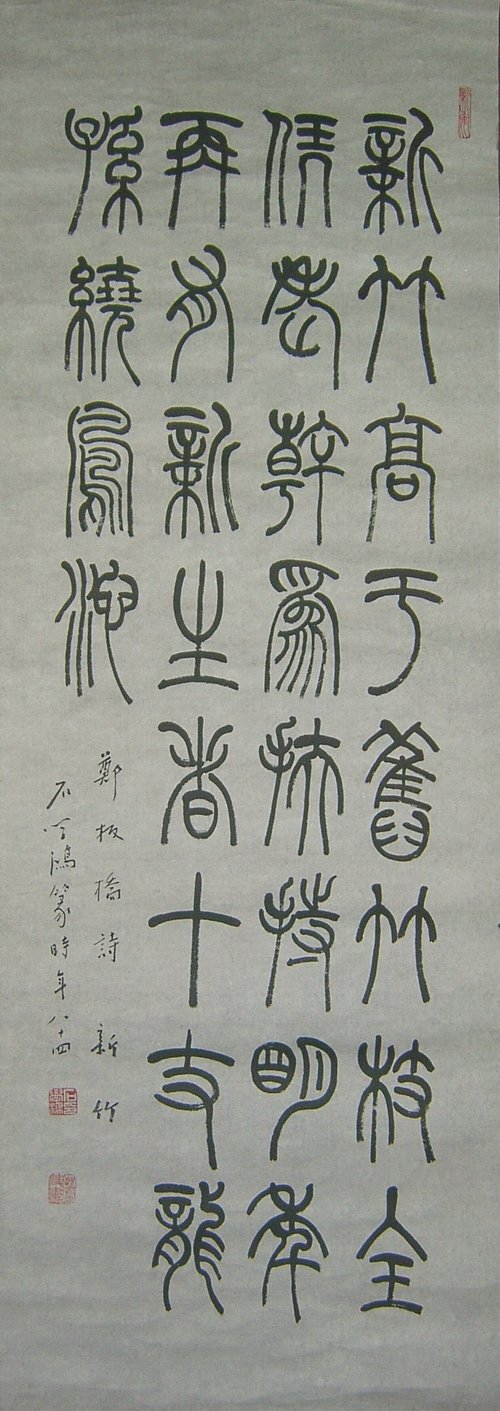 新竹高于舊竹枝全
凭老幹為扶持明年
再有新生者十丈龍
孫繞鳳池
鄭板橋詩 新竹
石鴻篆時年八十四